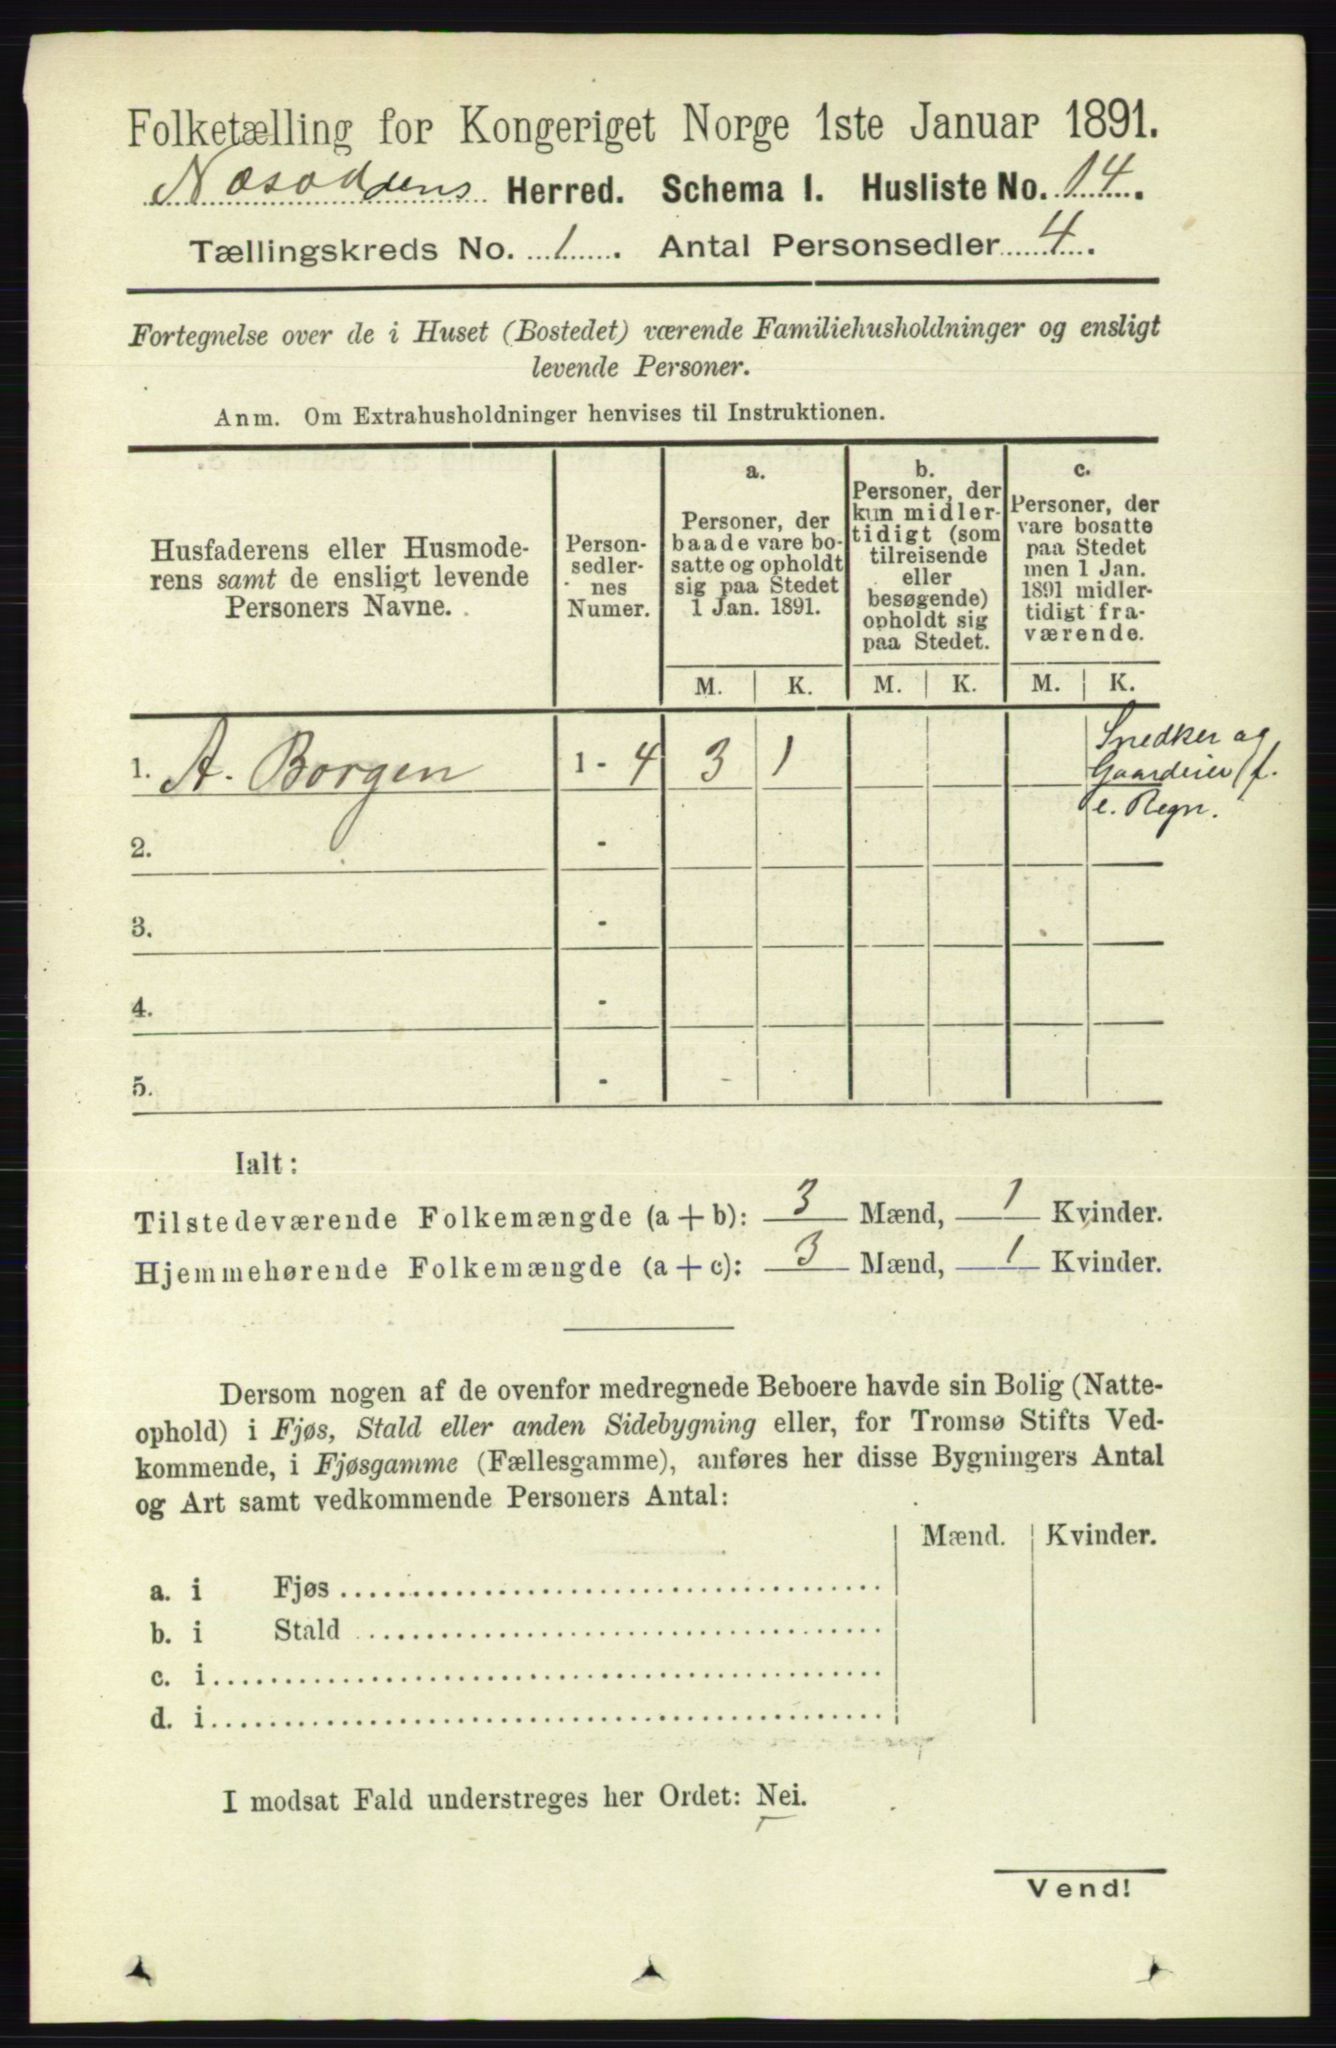 Folketælling for Kongeriget Norge 1ste Januar 1891.
Næsoddens Herred. Schema I. Husliste No. 14.
Tællingskreds No. 1. Antal Personsedler 4.
Fortegnelse over de i Huset (Bostedet) værende Familiehusholdninger og ensligt
levende Personer.
Anm. Om Extrahusholdninger henvises til Instruktionen.
Husfaderens eller Husmode-
rens samt de ensligt levende
Personers Navne.
Person-
sedler-
nes
Numer.
a.
Personer, der
baade vare bo-
satte og opholdt
sig paa Stedet
1 Jan. 1891.
b.
Personer, der
kun midler-
tidigt (som
tilreisende
eller
besøgende)
opholdt sig
paa Stedet.
c.
Personer, der
vare bosatte
paa Stedet
men 1 Jan.
1891 midler-
tidigt fra-
værende.
M. K. M. K. M. K.
1. A. Borgen 1 - 4 3 1
Snedker og
Gaardeier f.
e. Regn.
2. -
3. -
4. -
5. -
Ialt:
Tilstedeværende Folkemængde (a + b): 3 Mænd, 1 Kvinder.
Hjemmehørende Folkemængde (a + c): 3 Mænd, 1 Kvinder.
Dersom nogen af de ovenfor medregnede Beboere havde sin Bolig (Natte-
ophold) i Fjøs, Stald eller anden Sidebygning eller, for Tromsø Stifts Ved-
kommende, i Fjøsgamme (Fællesgamme), anføres her disse Bygningers Antal
og Art samt vedkommende Personers Antal:
Mænd. Kvinder.
a. i Fjøs
b. i Stald
c. i
d. i
I modsat Fald understreges her Ordet: Nei.
Vend!